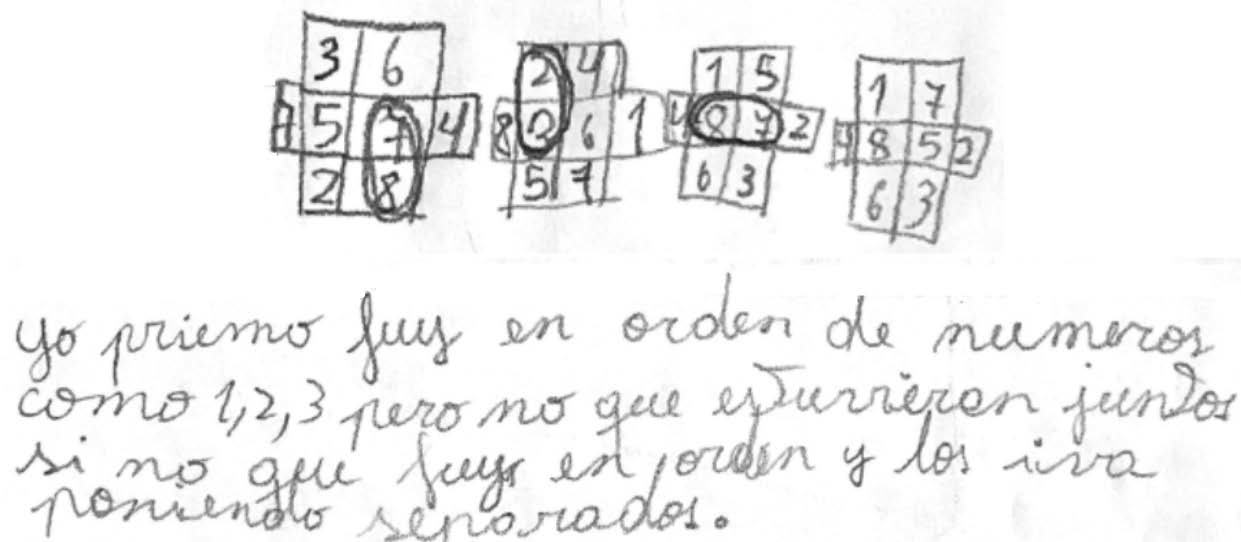 3 6 2 4 1 5 1 7
1 5 7 4 8 3 6 1 4 8 7 2 4 8 5 2
2 8 5 7 6 3 6 3
yo priemo fuy en orden de numeros
como 1,2,3 pero no que esturrieran juntos
si no que fuy en orden y los iva
poniendo separados.